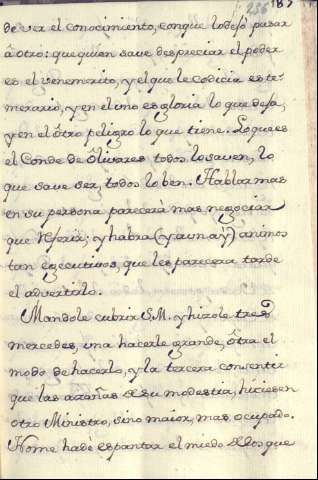 236 187
de ver el conocimiento, conque lo dejó pasar
â otro: que quien save despreciar el poder
es el venemerito, y el que le codicia es te-
merario, y en el uno es gloria lo que deja,
y en el ôtro peligro lo que tiene. Lo que es
el Conde de Ôlivares todos lo saven, lo
que save ser, todos lo ben. Hablar mas
en su persona parecerà mas negociar
que referir; y habra (y aun ay) ánimos
tan egecutivos, que les parecera tarde
el advertirlo.
Mandole cubrir S.M. y hizole tres
mercedes, una hacerle grande, ôtra el
modo de hacerlo, y la tercera consentir
que las azañas de su modestia, hiciesen
otro Ministro, sino maior, mas ocupado.
No me hade espantar el miedo de los que